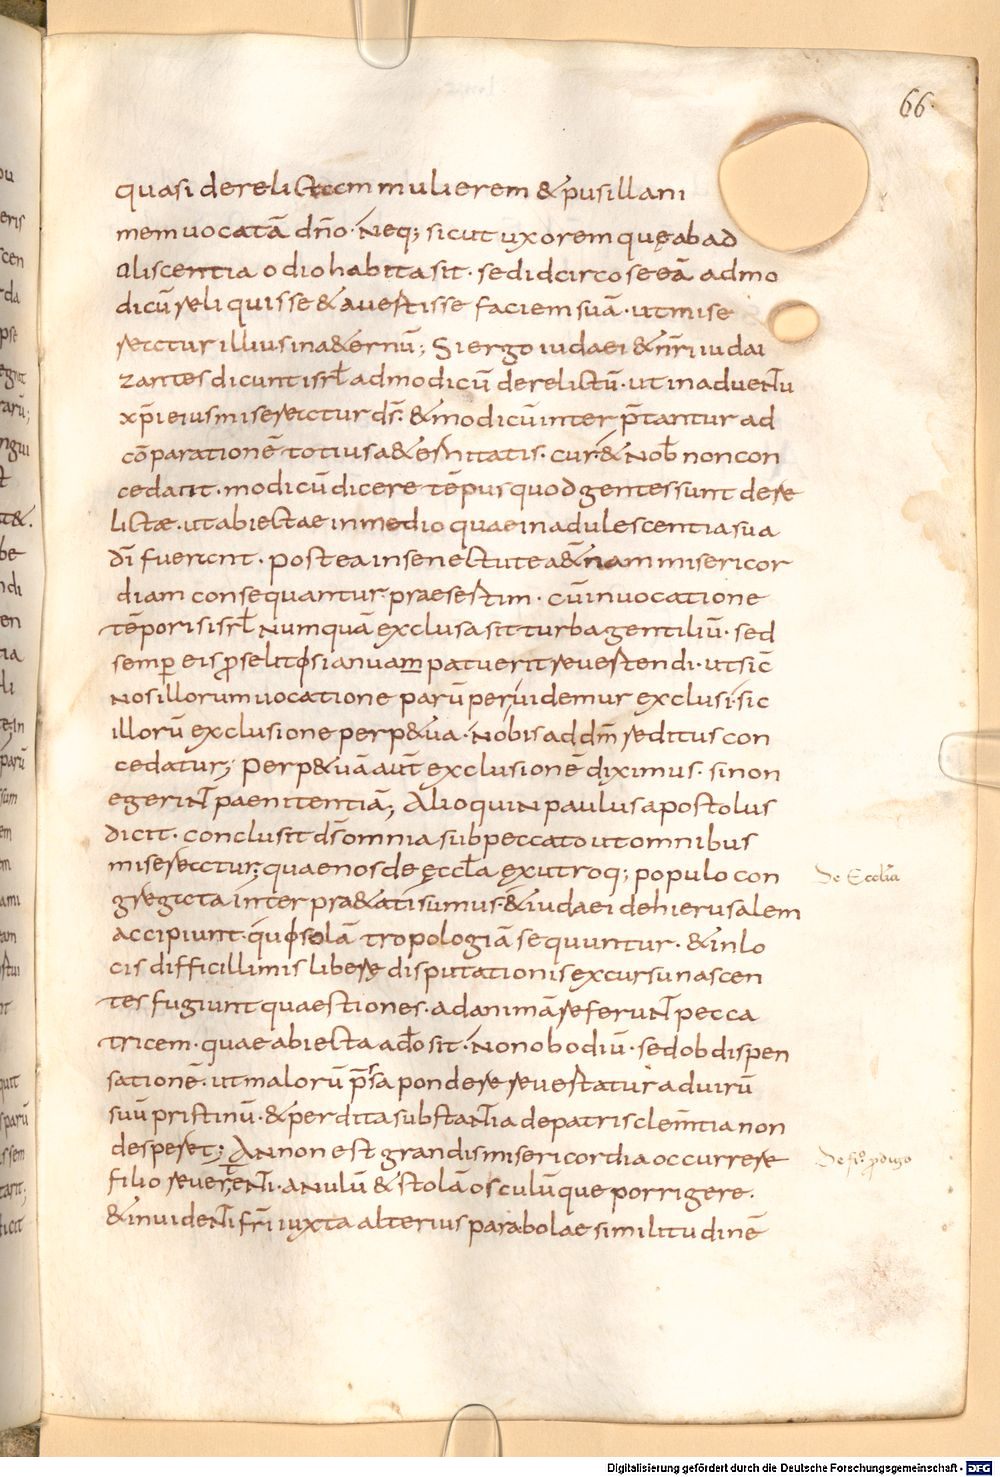 66.
quasi derelictam mulierem & pusillani
mem uocatā dn̄o. Neq; sicut uxorem quę ab ad
aliscentia odio habita sit. sed idcirco se eā ad mo
dicū reliquisse & auertisse faciem suā. ut mise
reatur illius in a&ernū; Si ergo iudaei & nr̄i iudai
zantes dicunt isrł ad modicū derelictū. ut in aduentu
xp̄i eius misereatur ds̄. & modicū interp̄tantur ad
cōparationē totius a&ernitatis. cur & nob̄ non con
cedant. modicū dicere tēpus quod gentes sunt dere
lictæ. ut abiectae in medio quae in adulescentia sua
dī fuerant. postea in senectute a&nam misericor
diam consequantur. praesertim. cū in uocatione
tēporis isrł numquā exclusa sit turba gentiliū. sed
semper eis proselitis ianuam patuerit reuertendi. ut sic̄
nos illorum uocatione parūper uidemur exclusi. sic
illorū exclusione perp&ua. nobis ad dm̄ reditus con
cedatur; Perp&uā aut̄ exclusionē diximus. si non
egerint paenitentiā; Alioquin paulus apostolus
dicit. conclusit ds̄ omnia sub peccato ut omnibus
misereatur; quae nos de ęccła ex utroq; populo con
De Ecclīa
gregata interpra&ati sumus. & iudaei de hierusalem
accipiunt. qui solā tropologiā sequuntur. & in lo
cis difficillimis libere disputationis excursu nascen
tes fugiunt quaestiones. ad animā referunt pecca
tricem. quae abiecta a dō sit. non ob odiū. sed ob dispen
sationē. ut malorū p̄sa pondere reuertatur ad uirū
suū pristinū. & perdita substantia de patris clem̄tia non
desperet; An non est grandis misericordia occurrere
De fil. prodigo
filio reuertenti. anulū & stolā osculūque porrigere.
& inuidenti fr̄i iuxta alterius parabolae similitudinē
Digitalisierung gefördert durch die Deutsche Forschungsgemeinschaft - DFG